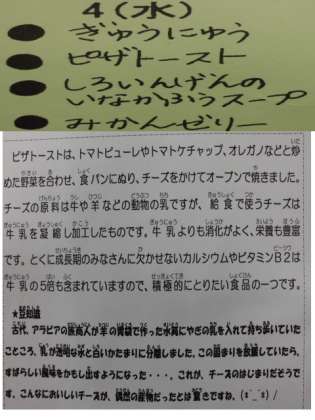 4(水)
● ぎゅうにゅう
● ピザトースト
● しろいんげんの
いなかふうスープ
● みかんゼリー
ピザトーストは、トマトピューレやトマトケチャップ、オレガノなどと炒
めた野菜を合わせ、食パンにぬり、チーズをかけてオーブンで焼きました。
チーズの原料は牛や羊などの動物の乳ですが、給食で使うチーズは
牛乳を凝縮し加工したものです。牛乳よりも消化がよく、栄養も豊富
です。とくに成長期のみなさんに欠かせないカルシウムやビタミンB2は
牛乳の5倍も含まれていますので、積極的にとりたい食品の一つです。
★豆知識
古代、アラビアの旅商人が羊の胃袋で作った水筒にやぎの乳を入れて持ち歩いていた
ところ、乳が透明な水と白いかたまりに分離しました。この固まりを放置していたら、
すばらしい風味をかもし出すようになった・・・。これが、チーズのはじまりだそうで
す。こんなにおいしいチーズが、偶然の産物だったとは驚きですね。